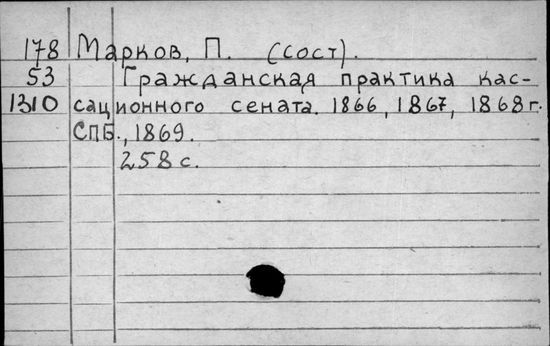 178 Марков, П. (сост).
53 Гражданская практика кас-
1310 сационного сената. 1866, 1867, 1868 г.
СПБ., 1869.
258 с.